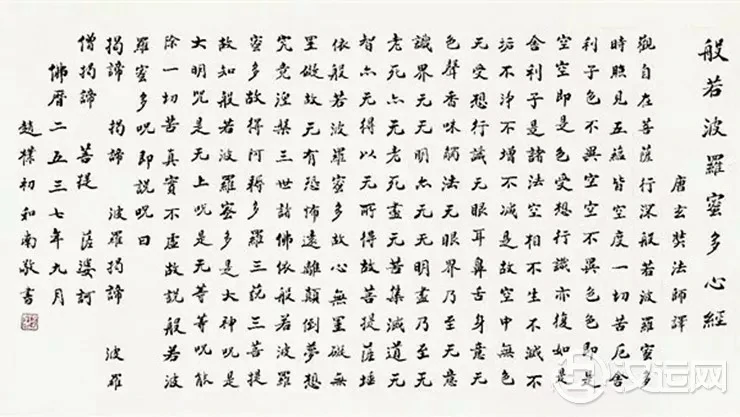 般若波羅蜜多心經
唐玄奘法師譯
觀自在菩薩行深般若波羅蜜多
時照見五蘊皆空度一切苦厄舍
利子色不異空空不異色色即是
空空即是色受想行識亦復如是
舍利子是諸法空相不生不滅不
垢不淨不增不減是故空中無色
无受想行識无眼耳鼻舌身意无
色聲香味觸法无眼界乃至无意
識界无无明亦无无明盡乃至无
老死亦无老死盡无苦集滅道无
智亦无得以无所得故菩提薩埵
依般若波羅蜜多故心無罣礙無
罣礙故无有恐怖遠離顛倒夢想
究竟涅槃三世諸佛依般若波羅
蜜多故得阿耨多羅三藐三菩提
故知般若波羅蜜多是大神咒是
大明咒是无上咒是无等等咒能
除一切苦真實不虛故說般若波
羅蜜多咒即說咒曰
揭諦 揭諦 波羅揭諦 波羅
僧揭諦 菩提 薩婆訶
佛曆二五三七年九月
趙樸初和南敬書
汉运网